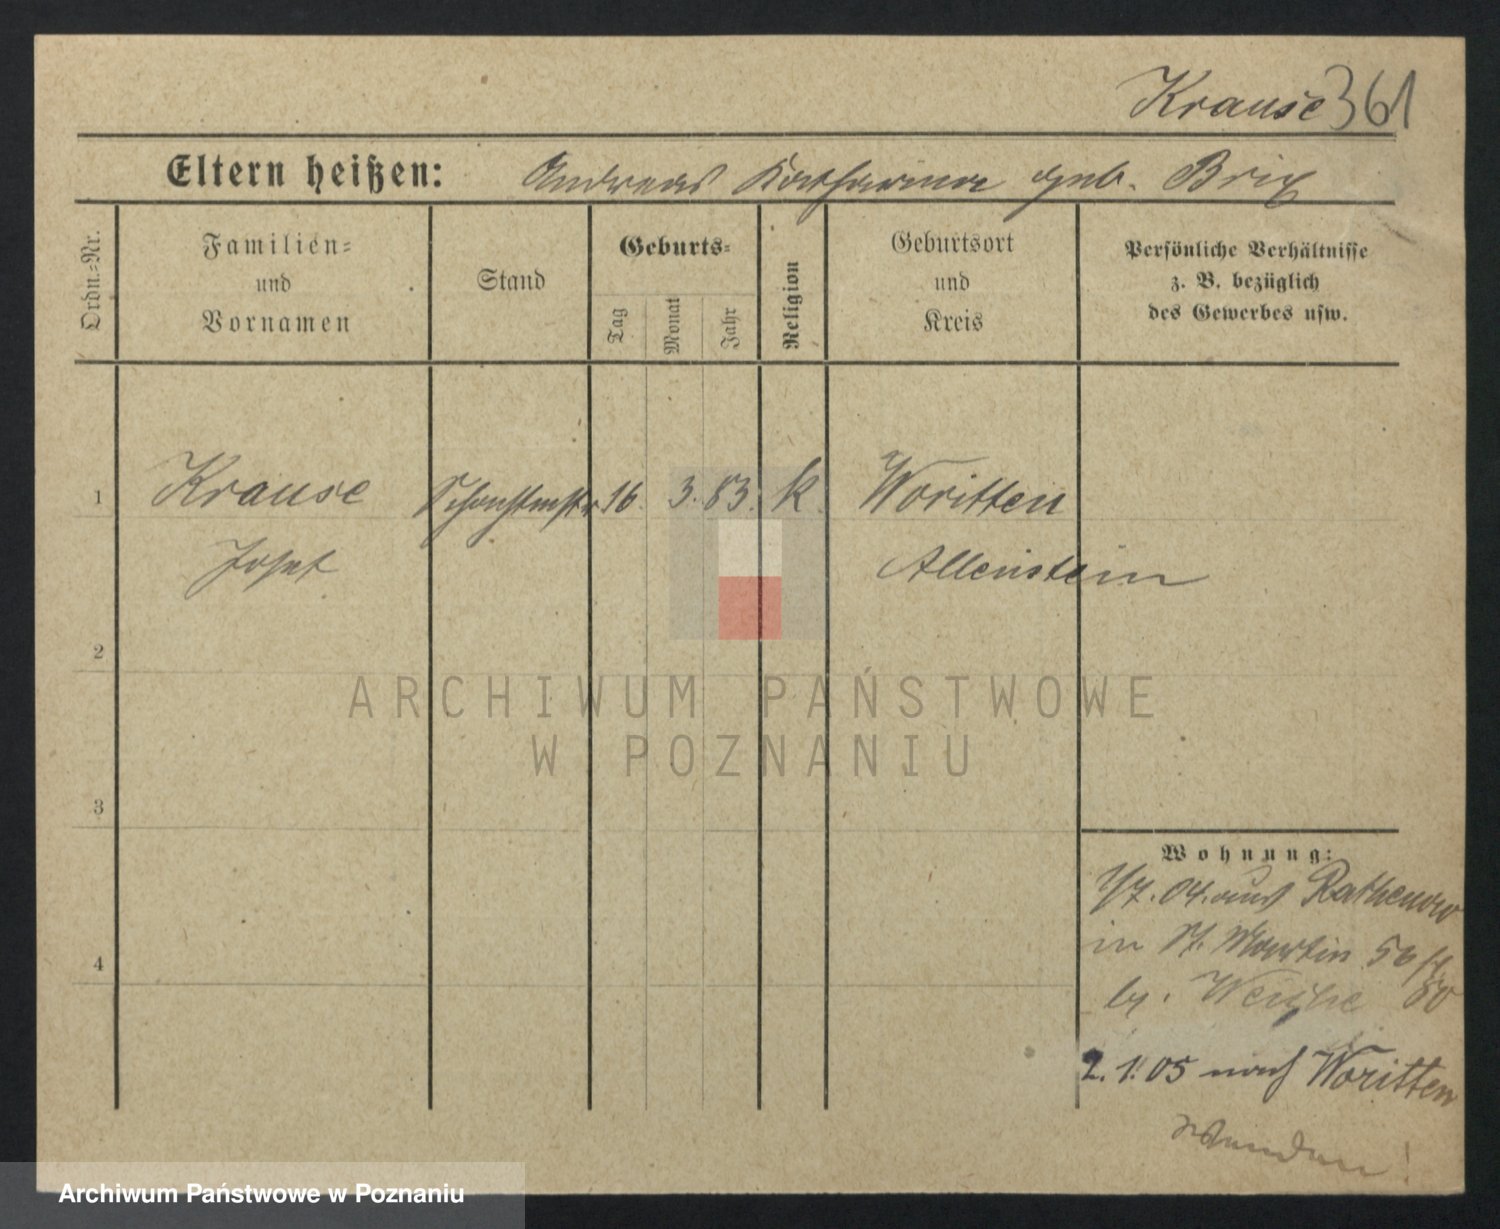 Krause 361
Eltern heißen: Andreas Katharina geb. Brix
Ordn.-Nr.
Familien-
und
Vornamen
Stand
Geburts-
Tag
Monat
Jahr
Religion
Geburtsort
und
Kreis
Persönliche Verhältnisse
z. B. bezüglich
des Gewerbes usw.
1 Krause 16. 3. 83. k. Woritten
Josef Allenstein
2
3
4
Wohnung:
1/7. 04. aus Rathenow
in St. Martin 56
by.
2. 1. 05 nach Woritten
wenden!
ARCHIWUM PAŃSTWOWE
W POZNANIU
Archiwum Państwowe w Poznaniu